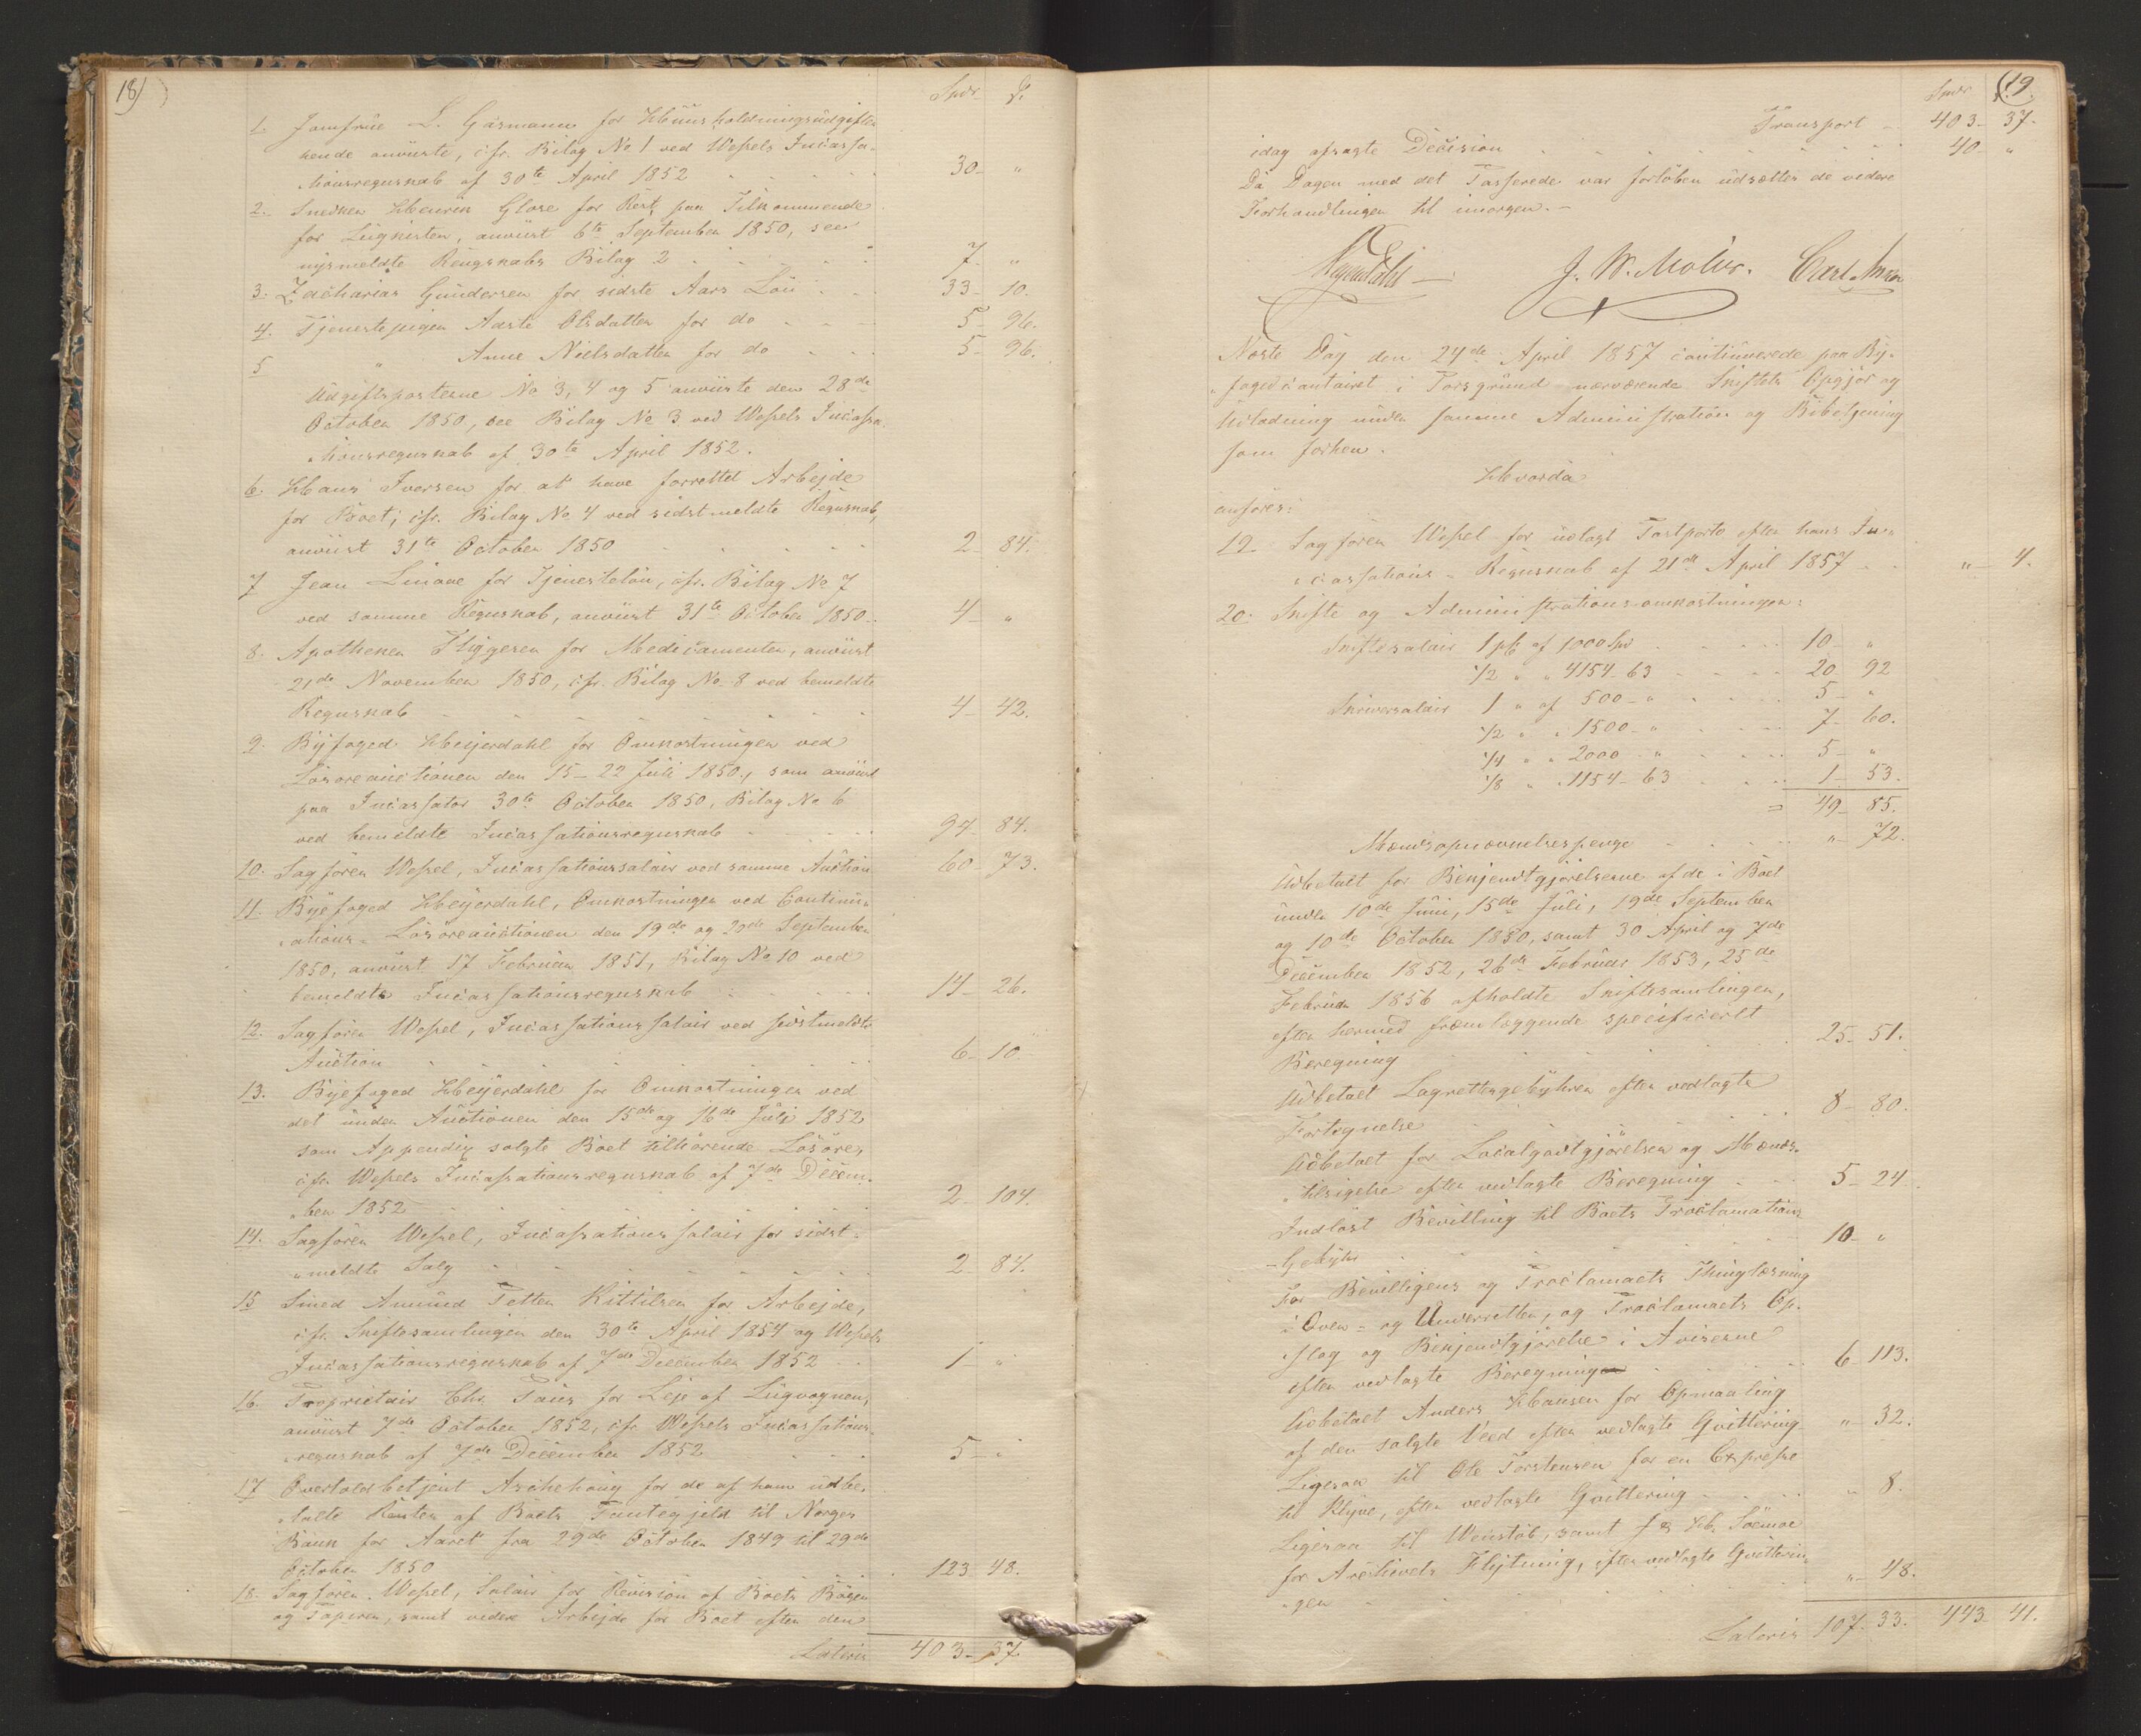 18)
Spdr. ß.
1. Jomfrue L. Gasmann for Huusholdningsudgifter
hende anviiste, cfr. Bilag No 1 ved Wessels Incassa-
tionsregnskab af 30te April 1852 30- "
2. Snedker Henrik Glose for Rest paa Tilkommende
for Liigkisten, anviist 6te September 1850, see
nysmeldte Rengskabs Bilag 2 7. "
3. Zacharias Gundersen for sidste Aars Løn 33- 10.
4. Tjenestepigen Aaste Olsdatter for do 5- 96.
5 " Anne Nielsdatter for do 5- 96.
Udgiftsposterne No 3, 4 og 5 anviiste den 28de
October 1850, see Bilag No 3 ved Wessels Incassa-
tionsregnskab af 30te April 1852.
6. Hans Iversen for at have forrettet Arbejde
for Boet; cfr. Bilag No 4 ved sidstmeldte Regnskab,
anviist 31te October 1850 2- 84.
7 Jean Linaae for Tjenesteløn, cfr. Bilag No 7
ved samme Regnskab, anviist 31te October 1850. 4- "
8. Apotheker Fliggesen for Medicamenter, anviist
21de November 1850, cfr. Bilag No 8 ved bemeldte
Regnskab 4- 42.
9. Byfoged Heyerdahl for Omkostninger ved
Løsøreauctionen den 15-22 Juli 1850, som anviist
paa Incassator 30te October 1850, Bilag No 6
ved bemeldte Incassationsregnskab 94- 84.
10. Sagfører Wessel, Incassationssalair ved samme Auction 60- 73.
11. Byefoged Heyerdahl, Omkostninger ved Continu-
ations-Løsøreauctionen den 19de og 20de September
1850, anviist 17 Februar 1851, Bilag No 10 ved
bemeldte Incassationsregnskab 14- 26.
12. Sagfører Wessel, Incassationssalair ved sidstmeldte
Auction 6- 10
13. Byefoged Heyerdahl for Omkostninger ved
det under Auctionen den 15de og 16de Juli 1852
som Appendix solgte Boet tilhørende Løsøre,
cfr. Wessels Incassationsregnskab af 7de Decem-
ber 1852 2- 104.
14. Sagfører Wessel, Incassationssalair for sidst-
meldte Salg 2- 84.
15 Smed Amund Tetter Kittilsen for Arbejde,
cfr. Skiftesamlingen den 30te April 1854 og Wessels
Incassationsregnskab af 7de December 1852 1- "
16. Proprietair Chr. Paus for Leje af Liigvognen,
anviist 7de October 1852, cfr. Wessels Incassations-
regnskab af 7de December 1852 5- "
17 Overtoldbetjent Aschehoug for de af ham udbe-
talte Renter af Boets Pantegjeld til Norges
Bank for Aaret fra 29de October 1849 til 29de
October 1850 123 48.
18. Sagfører Wessel, Salair for Revision af Boets Bøger
og Papirer, samt videre Arbejde for Boet efter den
Lateris 403- 37
(19.
Spdr ß.
Transport 403- 37.
idag afsagte Decision 40- "
Da Dagen med det Passerede var forløben udsættes de videre
Forhandlinger til imorgen.-
Heyerdahl J. W. Møller. Carl Anker
Næste Dag den 24de April 1857 continuerede paa By-
fogedcontoiret i Porsgrund nærværende Skiftets Opgjør og
Udlodning under samme Administration og Bibetjening
som forhen.
Hvorda
anføres:
19. Sagfører Wessel for udlagt Postporto efter hans In-
cassations-Regnskab af 21de April 1857 "- 4.
20. Skifte og Administrationsomkostninger:
Skiftesalair 1 pCt af 1000 Spd 10- "
1/2 " " 4154- 63 20- 92
Skriversalair 1 " af 500- " 5- "
1/2 " " 1500- " 7- 60.
1/4 " " 2000- " 5- "
1/8 " " 1154- 63 1- 53.
= 49- 85.
Mændsopnævnelsespenge "- 72.
Udbetalt for Bekjendtgjørelserne af de i Boet
under 10de Juni, 15de Juli, 19de September
og 10de October 1850, samt 30 April og 7de
December 1852, 26de Februar 1853, 25de
Februar 1856 afholdte Skiftesamlinger,
efter hermed fremlæggende specificerlt
Beregning 25- 51.
Udbetalt Lagrettesgebyhrer efter vedlagte
Fortegnelse 8- 80.
Udbetalt for Localgodtgjørelser og Mænds-
tilsigelse efter vedlagte Beregning 5- 24.
Indløst Bevilling til Boets Proclamations
-Gebyhr 10- "
For Bevillingens og Proclamaets Thinglæsning
i Over- og Underretten, og Proclamaets Op-
slag og Bekjendtgjørelse i Aviserne
efter vedlagte Beregning 6- 113.
Udbetalt Anders Hansen for Opmaaling
af den solgte Veed efter vedlagte Qvittering "- 32.
Ligesaa til Ole Torstensen for en Expresse
til Klyve, efter vedlagte Qvittering "- 8.
Ligesaa til Wenstøb, samt for Hr.
for Archivets Flytning, efter vedlagte Qvitterin-
ger "- 48.
Lateris 107- 33. 443- 41.